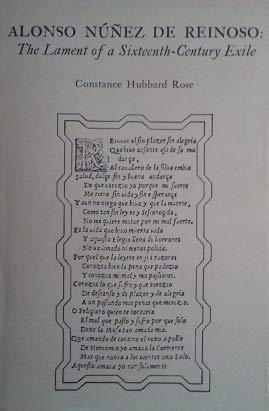 ALONSO NÚÑEZ DE REINOSO:
The Lament of a Sixteenth-Century Exile
Constance Hubbard Rose
el sin plazer sin alegria
Que biue
Al cauallero de la silua embia
salud, dulçe fin y buena andança
De que carezco yo porque mi suerte
Me tiene sin vida y sin esperança
Y aun no niego que biuo y que la muerte,
Como tan sin ley es y
No me quiere matar por mi mal fuerte.
Es la vida que biuo muerta vida
Y aquesta Elegia llena de borrones
No va limada ni menos polida.
Por que el que la leyere en sus razones
Conozca bien la pena que padezco
Y conozca mi mal y mis passiones.
Conozca lo que sufro y que carezco
De descanso y de plazer y de alegria
A un passando mas penas que merezco.
O Feliciano quien te contaria
El mal que passo y sufro por que solo
Dexe la Musa tan amada mia.
Que amando de contino el roxo Apollo
la Corriente
Mas que nunca a los vientos amo Eolo.
Aquesto amaua yo tan solamente